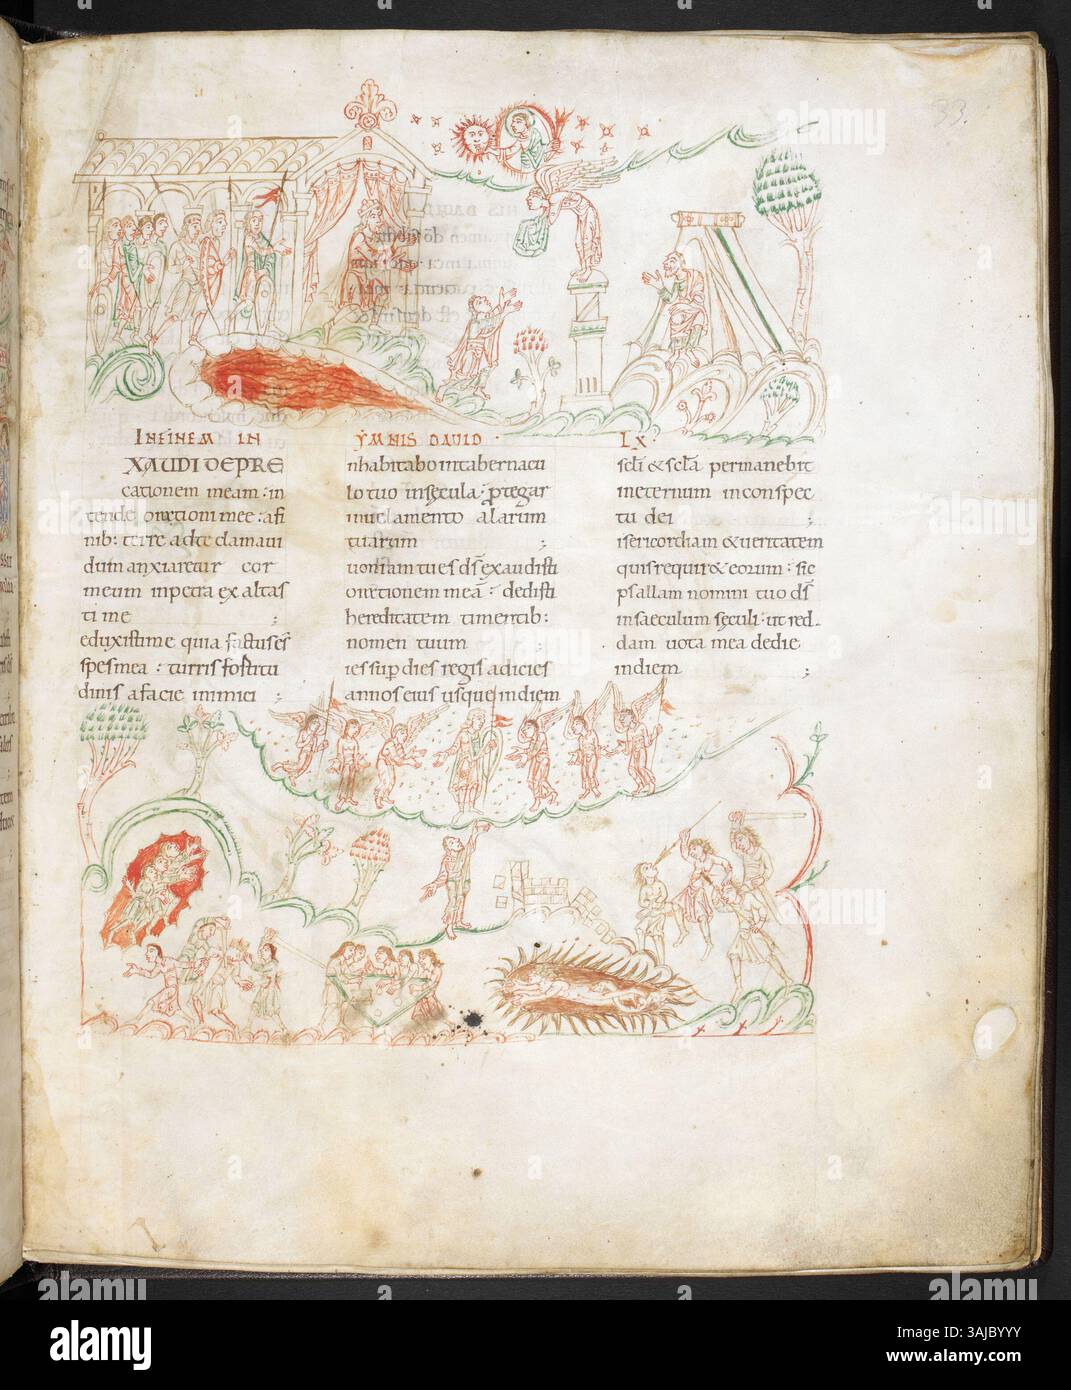 33.
INFINEM IN YMNIS DAUID · LX·
XAUDI DE PRE
cationem meam : in
tende orationi mee : a fi
nib: terre ad te clamaui
dum anxiaretur cor
meum in petra exaltas
ti me ;
eduxisti me quia factus es
spes mea : turris fortitu
dinis a facie inimici ;
nhabitabo in tabernacu
lo tuo in sęcula · ꝓtegar
in uelamento alarum
tuarum ;
uoniam tu es ds exaudisti
orationem meā : dedisti
hereditatem timentib:
nomen tuum ;
ies sup dies regis adicies
annos eius usque in diem
scli & scla permanebit
in eternum in conspec
tu dei ;
isericordiam & ueritatem
quis requir& eorum : sic
psallam nomini tuo ds
in saeculum sęculi · ut red
dam uota mea de die
in diem ;
alamy
Image ID: 3AJBYYY
www.alamy.com